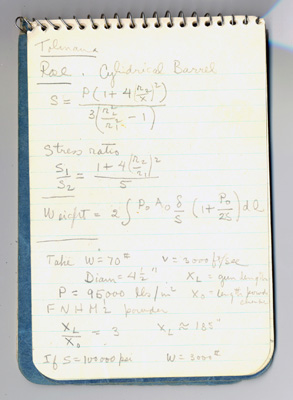 Tolman
Rose. Cylindrical Barrel
S = P(1 + 4(r2/x)²) / 3(r2²/r1² - 1)
Stress ratio
S1/S2 = 1 + 4(r2/r1)² / 5
Weight = 2 ∫ P0 A0 δ/S (1 + P0/2S) dl
Take W = 70# V = 3000 ft/sec
Diam = 4½" XL = gun length
P = 95000 lbs/in² X0 = length powder
FNHM2 powder
XL/X0 = 3 XL ≈ 185"
If S = 100000 psi W = 3000#